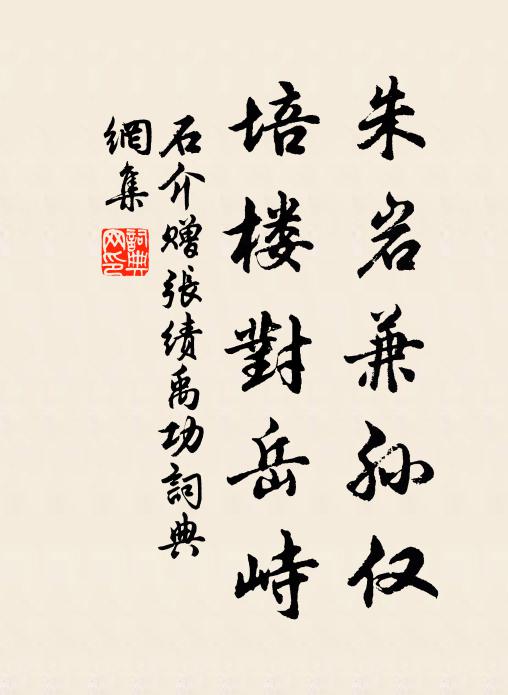 朱岩兼孙仅
培楼對岳峙
石介赠張绩禹功詞典
網集
詞典
网印